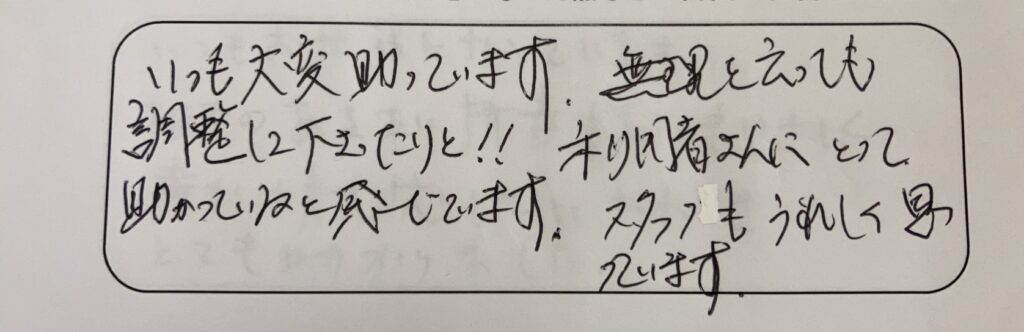 いつも大変助っています。無理を言っても
調整して下さったりと!! 利用者さんにとって
助かっているなと感じています。スタッフもうれしく思
っています。